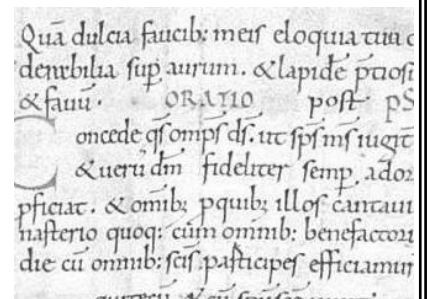 Quã dulcia faucib: meis eloquia tua
derabilia sup aurum. & lapidẽ p̃tiosũ
& fauũ. ORATIO post pS
Concede q̃s omp̃s d̃s. ut sp̃s m̃s iugit
& uerũ dm̃ fideliter semp ador
pficiat. & omib; p quib; illos cantaui
nasterio quoq: cũm omnib: benefactori
die cũ omnib: sc̃is participes efficiamur